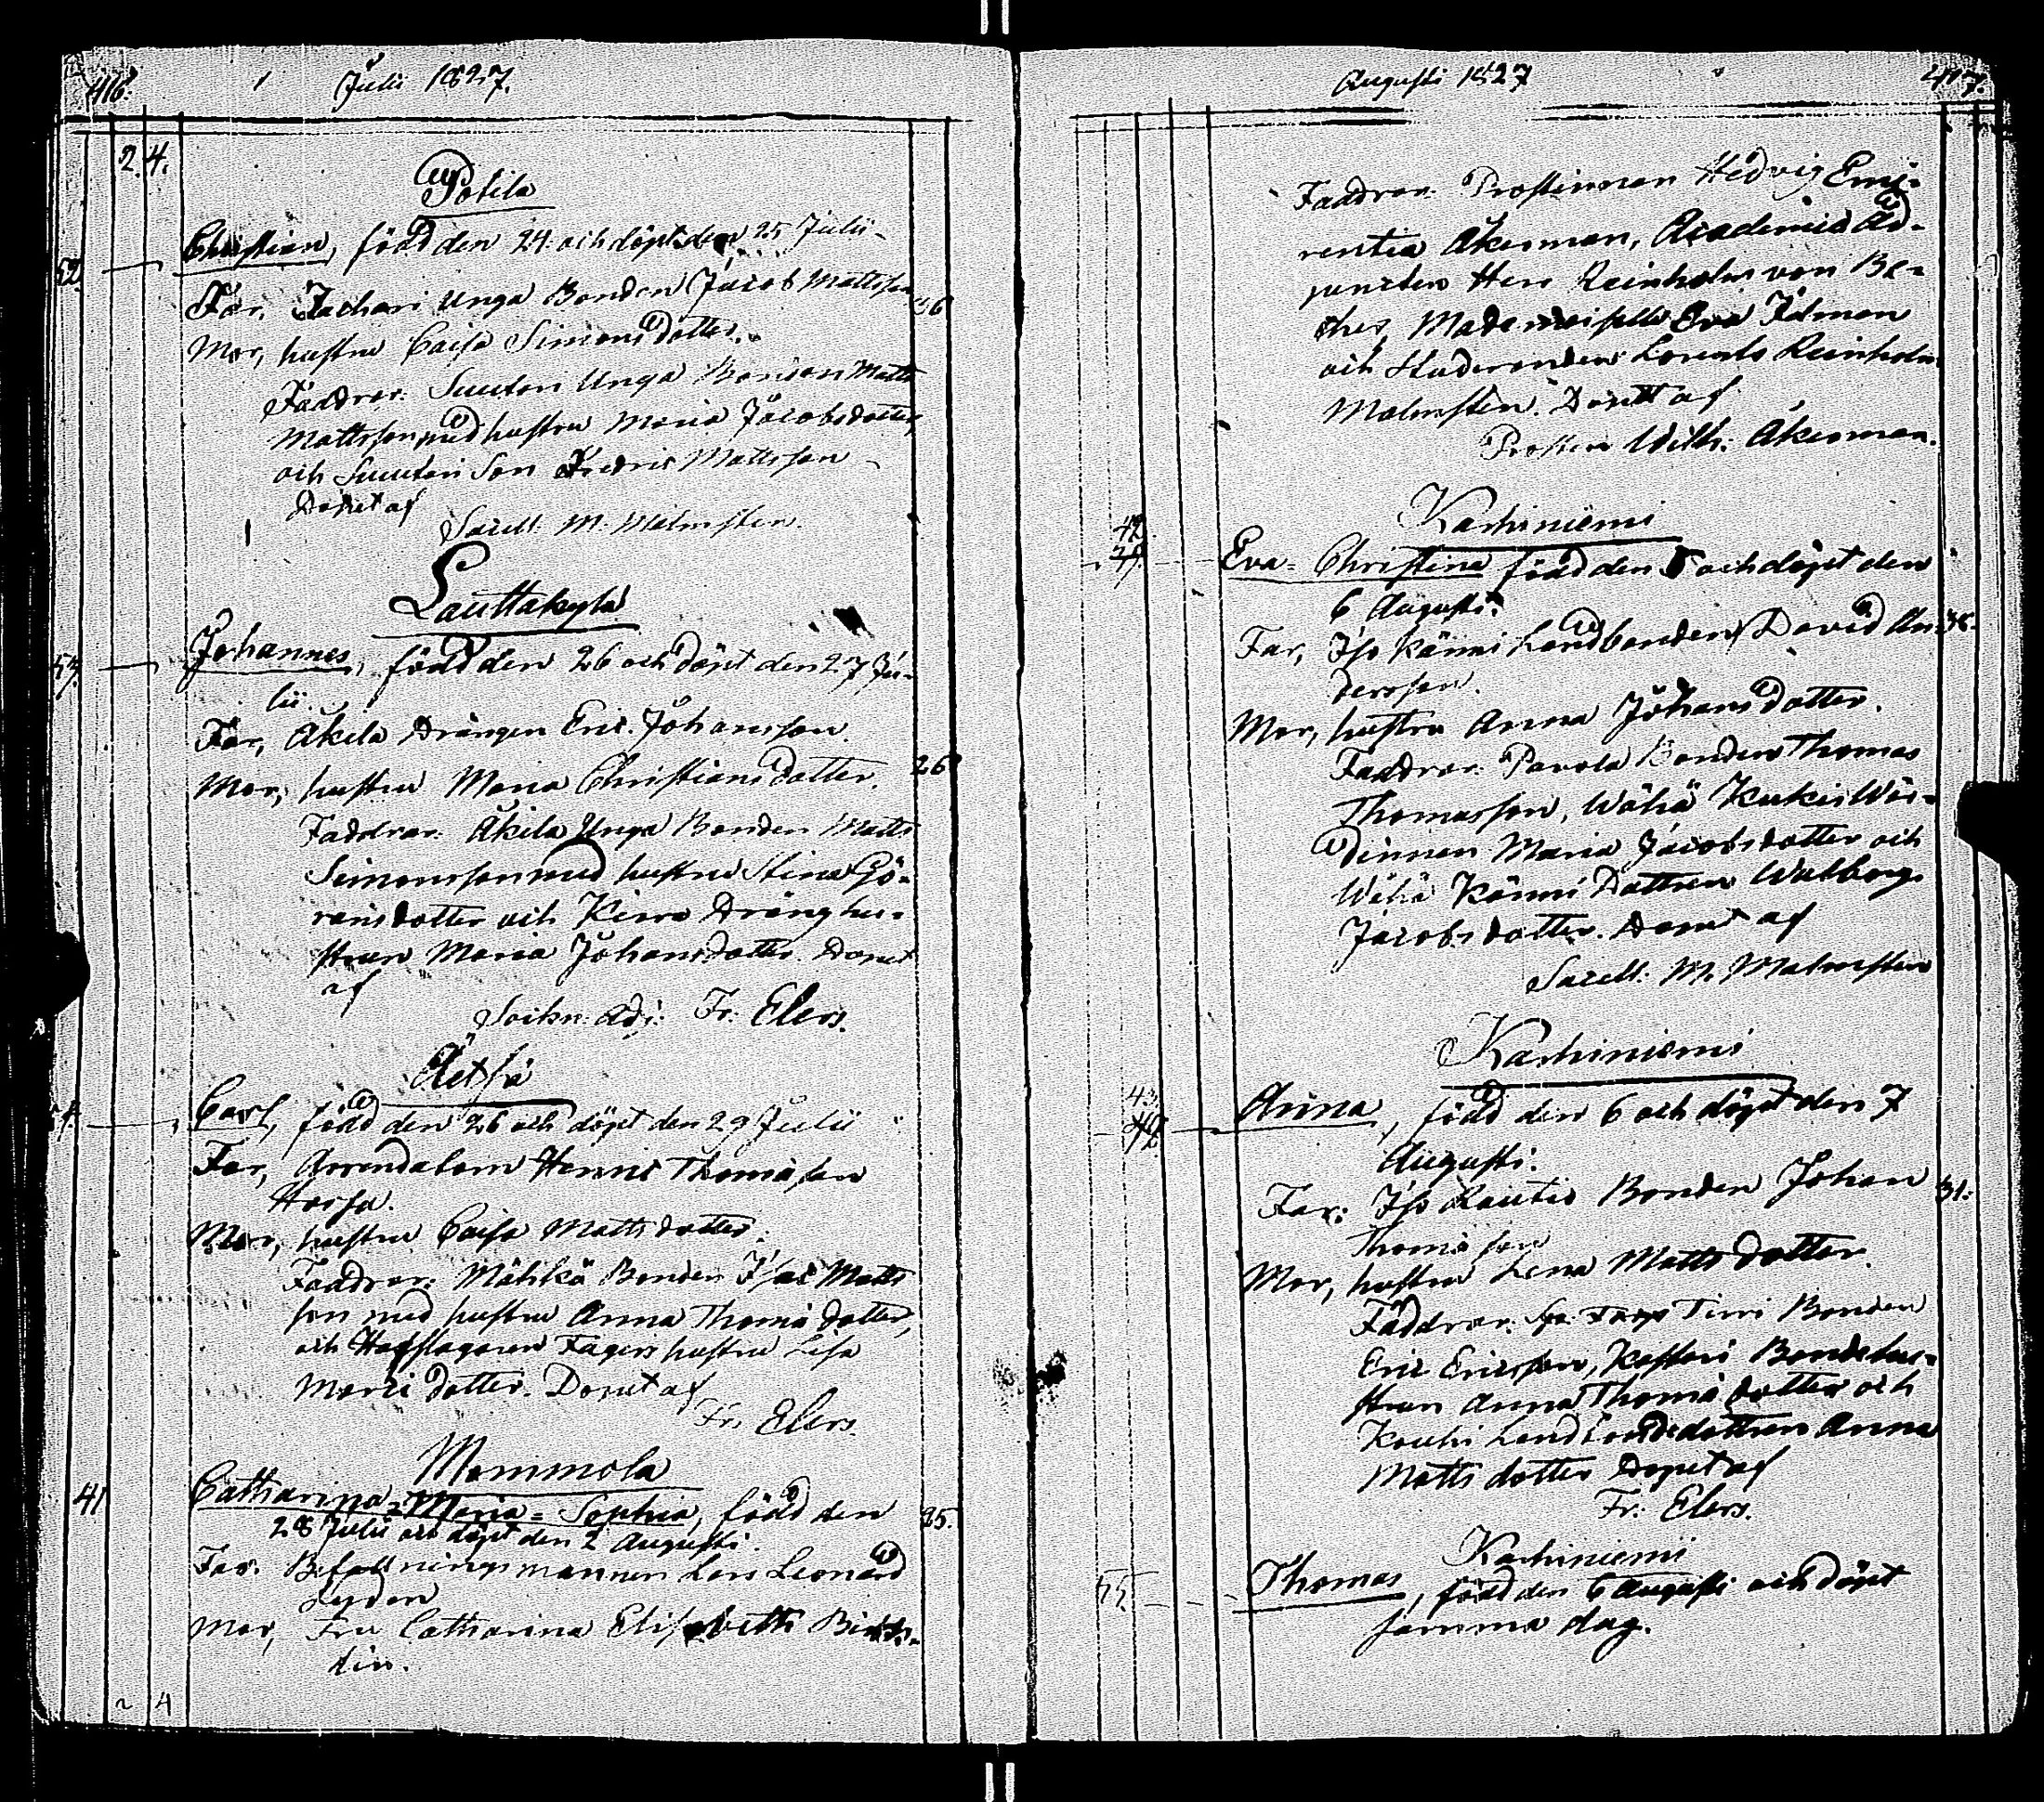 416.
Julii 1827.
2 4.
Potila
52.
Christian, född den 24 och döpt den 25 Julii
Far, Zachari Unga Bonden Jacob Mattsson
Mor, hustru Caisa Simonsdotter.
Faddrar: Suutari Unga Bonden Matts
Mattsson, med hustru Maria Jacobsdotter,
och Suutari Son Fredric Mattsson
Döpet af
Sacell. M. Malmsten.
Lauttakylä
53.
Johannes, född den 26 och döpt den 27 Ju-
lii.
Far, Äkilä Drängen Eric Johansson.
Mor, hustru Maria Christiansdotter.
26
Faddrar: Äkilä Unga Bonden Matts
Simonsson med hustru Stina Gö-
ransdotter och Kirra Dränghu-
strun Maria Johansdotter. Döpet
af
Sockn. Adj. Fr. Elers.
Äetsä
54.
Carl, född den 26 och döpt den 29 Julii
Far, Arrendatorn Henric Thomasson
Horsa.
Mor, hustru Caisa Mattsdotter.
Faddrar: Mähkä Bonden Isac Matts
son med hustru Anna Thomædotter,
och Hofslagaren Fagers hustru Lisa
Marci dotter. Döpet af
Fr. Elers.
Mommola
41
Catharina=Maria=Sophia, född den
28 Julii och döpt den 2 Augusti.
25.
Far. Befallningsmannen Lars Leonard
Lydén
Mor, Fru Catharina Elisabeth
2 4
Augusti 1827
417.
Faddrar: Prostinnan Hedvig Eme-
rentia Åkerman, Academiæ Ad-
juncten Herr Reinhold von Be-
cker, Mademoiselle Eva Idman
och Studeranden Lorentz Reinholm
Malmsten. Döpett af
Prosten Wilh. Åkerman.
Karhiniemi
42
Eva=Christina född den 5 och döpet den
6 Augusti.
Far, Iso Känni Landbonden David An-
dersson.
Mor, hustru Anna Johansdotter.
Faddrar: Pavola Bonden Thomas
Thomasson, Wähä Kukis Wär-
dinnan Maria Jacobsdotter och
Wähä Känni Dottren Walborg
Jacobsdotter. Döpet af
Sacell: M. Malmsten
Karhiniemi
43.
Anna, född den 6 och döpet den 7
Augusti.
Far: Iso Rautio Bonden Johan
31.
Thomasson
Mor, hustru Lena Mattsdotter.
Faddrar: Tirri Bonden
Eric Ericsson, Kastari Bondehu-
strun Anna Thomædotter och
Kouhi Landbondedottren Anna
Matts dotter Döpet af
Fr: Elers.
Karhiniemi
55.
Thomas, född den 6 Augusti och döpet
samma dag.